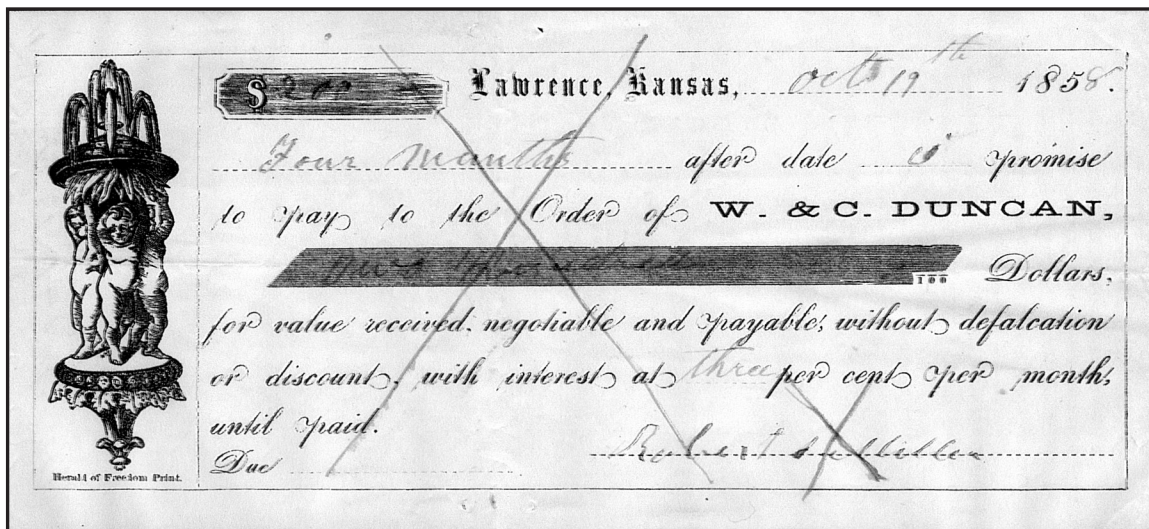 $ 200 Lawrence, Kansas, Oct 19th 1858.
Four months after date I promise
to pay to the Order of W. & C. DUNCAN,
Two Hundred 100 Dollars,
for value received, negotiable and payable, without defalcation
or discount, with interest at three per cent per month,
until paid.
Due Robert
Herald of Freedom Print.